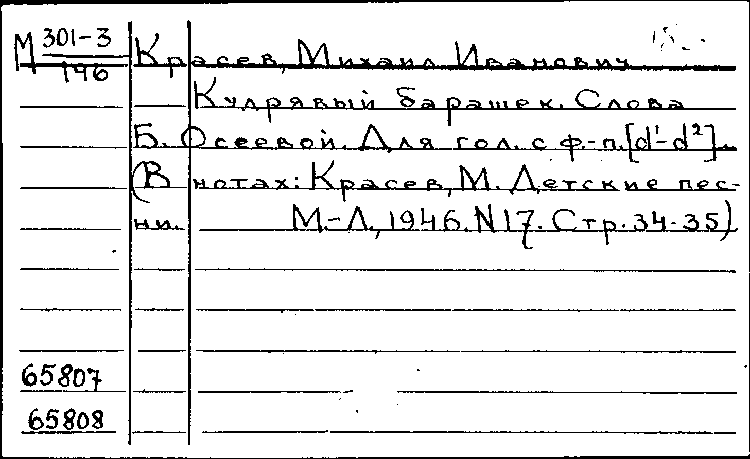 М 301-3 Красев, Михаил Иванович
196
Кудрявый барашек. Слова
Б. Осеевой. Для гол. с ф.-п. [d¹-d²]
(В нотах: Красев, М. Детские пес-
ни. М.-Л., 1946. N17. Стр. 34-35)
65807
65808